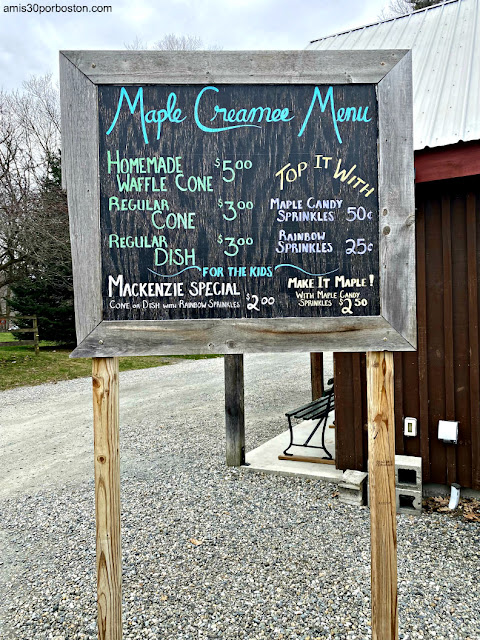 amis30porboston.com
Maple Creamee Menu
Homemade
Waffle Cone $5.00
Regular
Cone $3.00
Regular
Dish $3.00
Top It With
Maple Candy
Sprinkles 50¢
Rainbow
Sprinkles 25¢
For the Kids
Mackenzie Special
Cone or Dish with Rainbow Sprinkles $2.00
Make It Maple!
With Maple Candy
Sprinkles $2.50